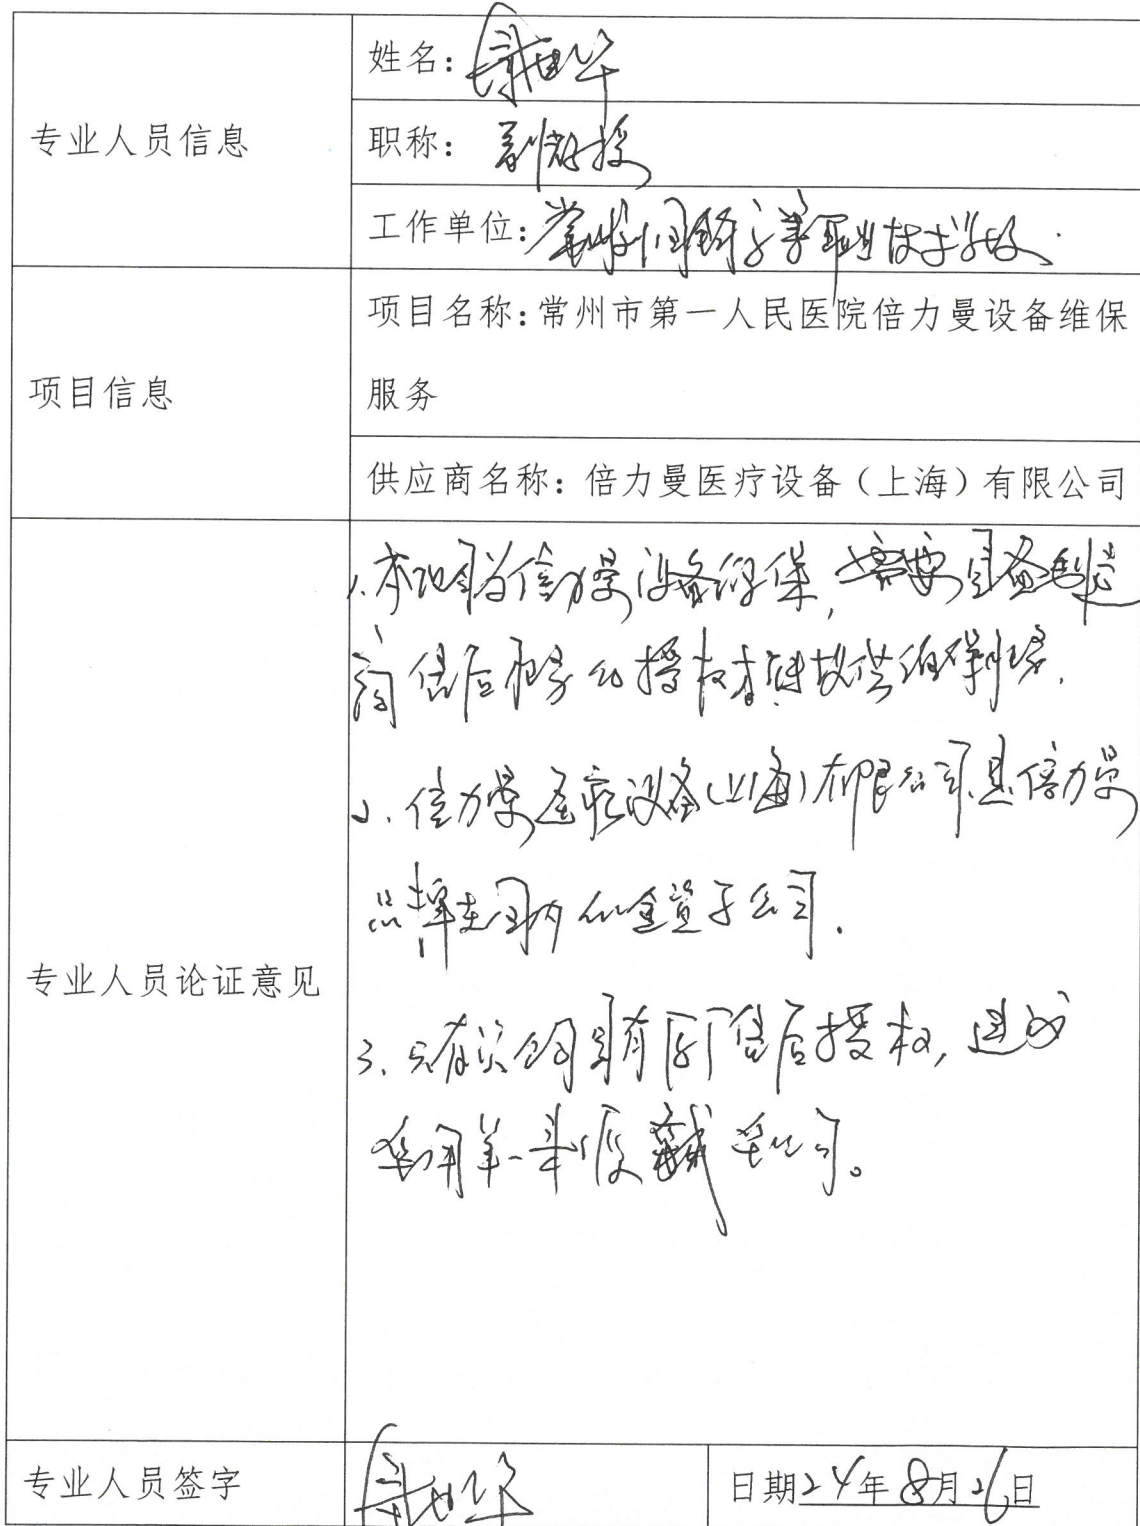 专业人员信息
姓名:
职称: 副教授
工作单位: 常州刘国钧高等职业技术学校.
项目信息
项目名称:常州市第一人民医院倍力曼设备维保
服务
供应商名称: 倍力曼医疗设备(上海)有限公司
专业人员论证意见
1.本项目为倍力曼设备维保,需要具备制造
商售后服务的授权才能提供维保服务.
2.倍力曼医疗设备(上海)有限公司是倍力曼
品牌在国内的全资子公司.
3.只有该公司具有原厂售后授权,建议
采用单一来源 采购。
专业人员签字
日期24年8月26日